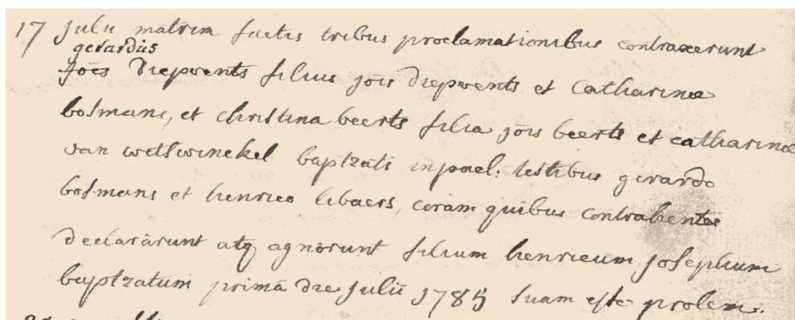 17 Julii matrim factis tribus proclamationibus contraxerunt
gerardus
Joes Dieperents filius jois dieperents et Catharinae
bosmans, et christina beerts filia jois beerts et catharinae
van welswinckel baptzati in pael: testibus gerardo
bosmans et henrico libaers, coram quibus contrahentes
declararunt atq agnorunt filium henricum josephum
baptzatum primâ die Julii 1785 suam esse prolem.